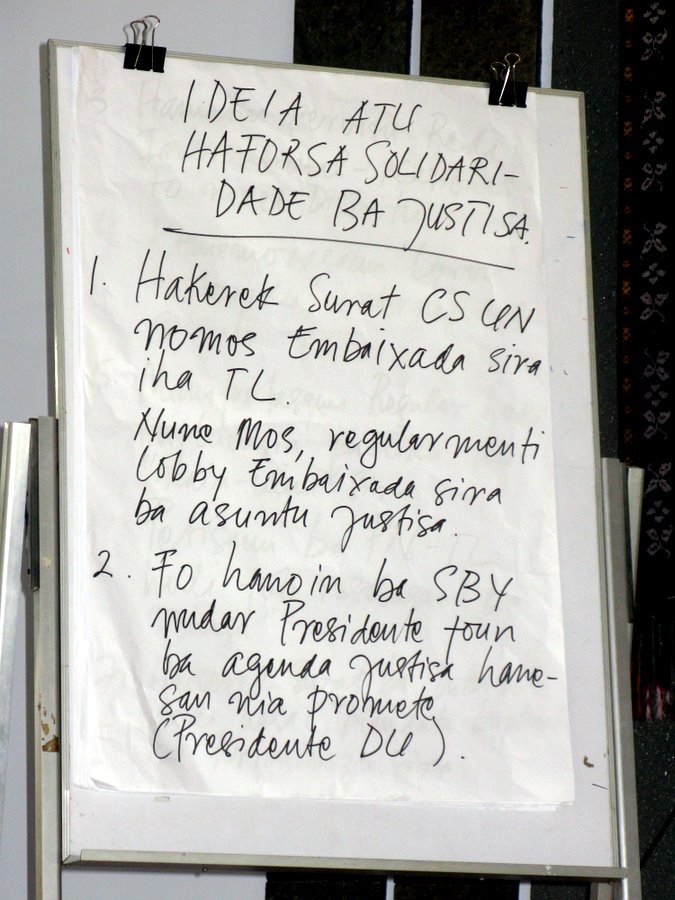 IDEIA ATU
HAFORSA SOLIDARI-
DADE BA JUSTISA.
1. Hakerek Surat CS UN
nomos Embaixada sira
iha TL.
Nune Mos, regularmenti
lobby Embaixada sira
ba asuntu justisa.
2. Fo hanoin ba SBY
nudar Presidente foun
ba agenda justisa hane-
san nia promete
(Presidente DU).